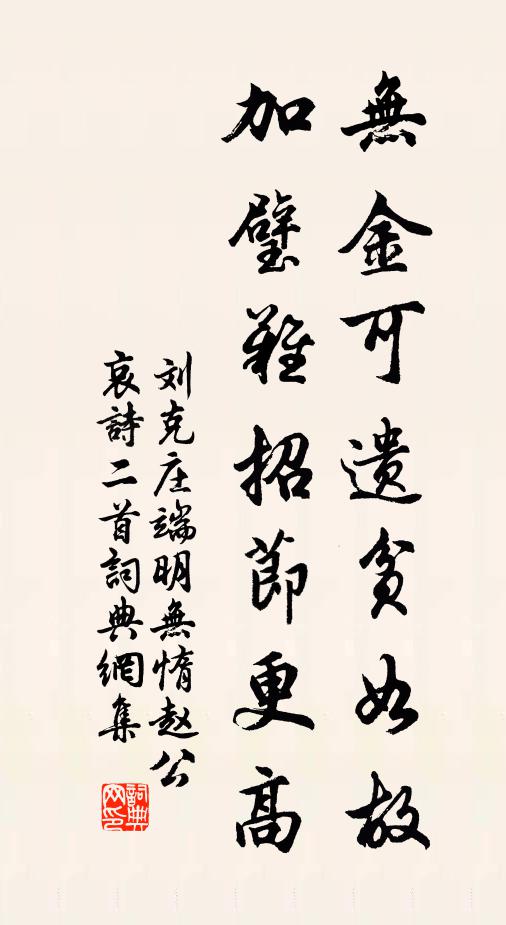 無金可遺貧如故
加璧難招節更高
刘克庄端明無惰赵公
哀詩二首詞典網集
詞典
网印